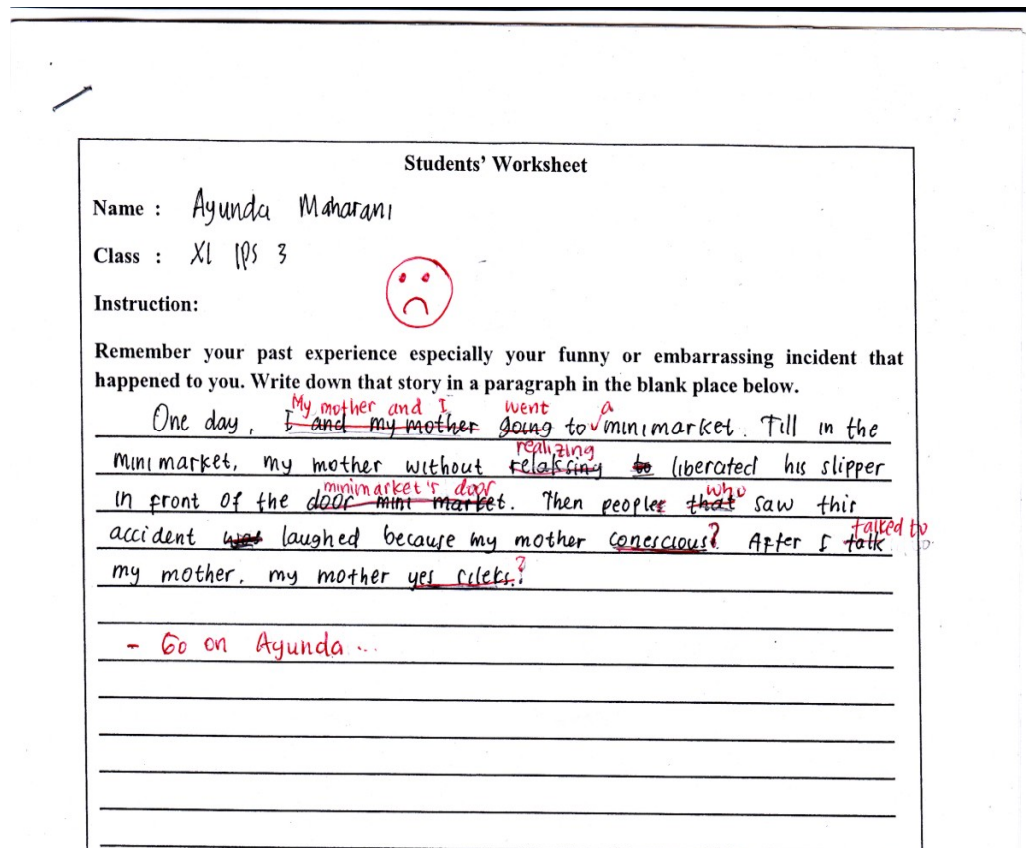 Students' Worksheet
Name : Ayunda Maharani
Class : XI IPS 3
Instruction:
Remember your past experience especially your funny or embarrassing incident that
happened to you. Write down that story in a paragraph in the blank place below.
My mother and I went a
One day, I and my mother going to minimarket. Till in the
realizing
minimarket, my mother without relaksing to liberated his slipper
minimarket's door who
in front of the door mini market. Then peoples that saw this
talked to
accident was laughed because my mother conescious? After I talk
my mother. my mother yes rileks.?
- Go on Ayunda ...